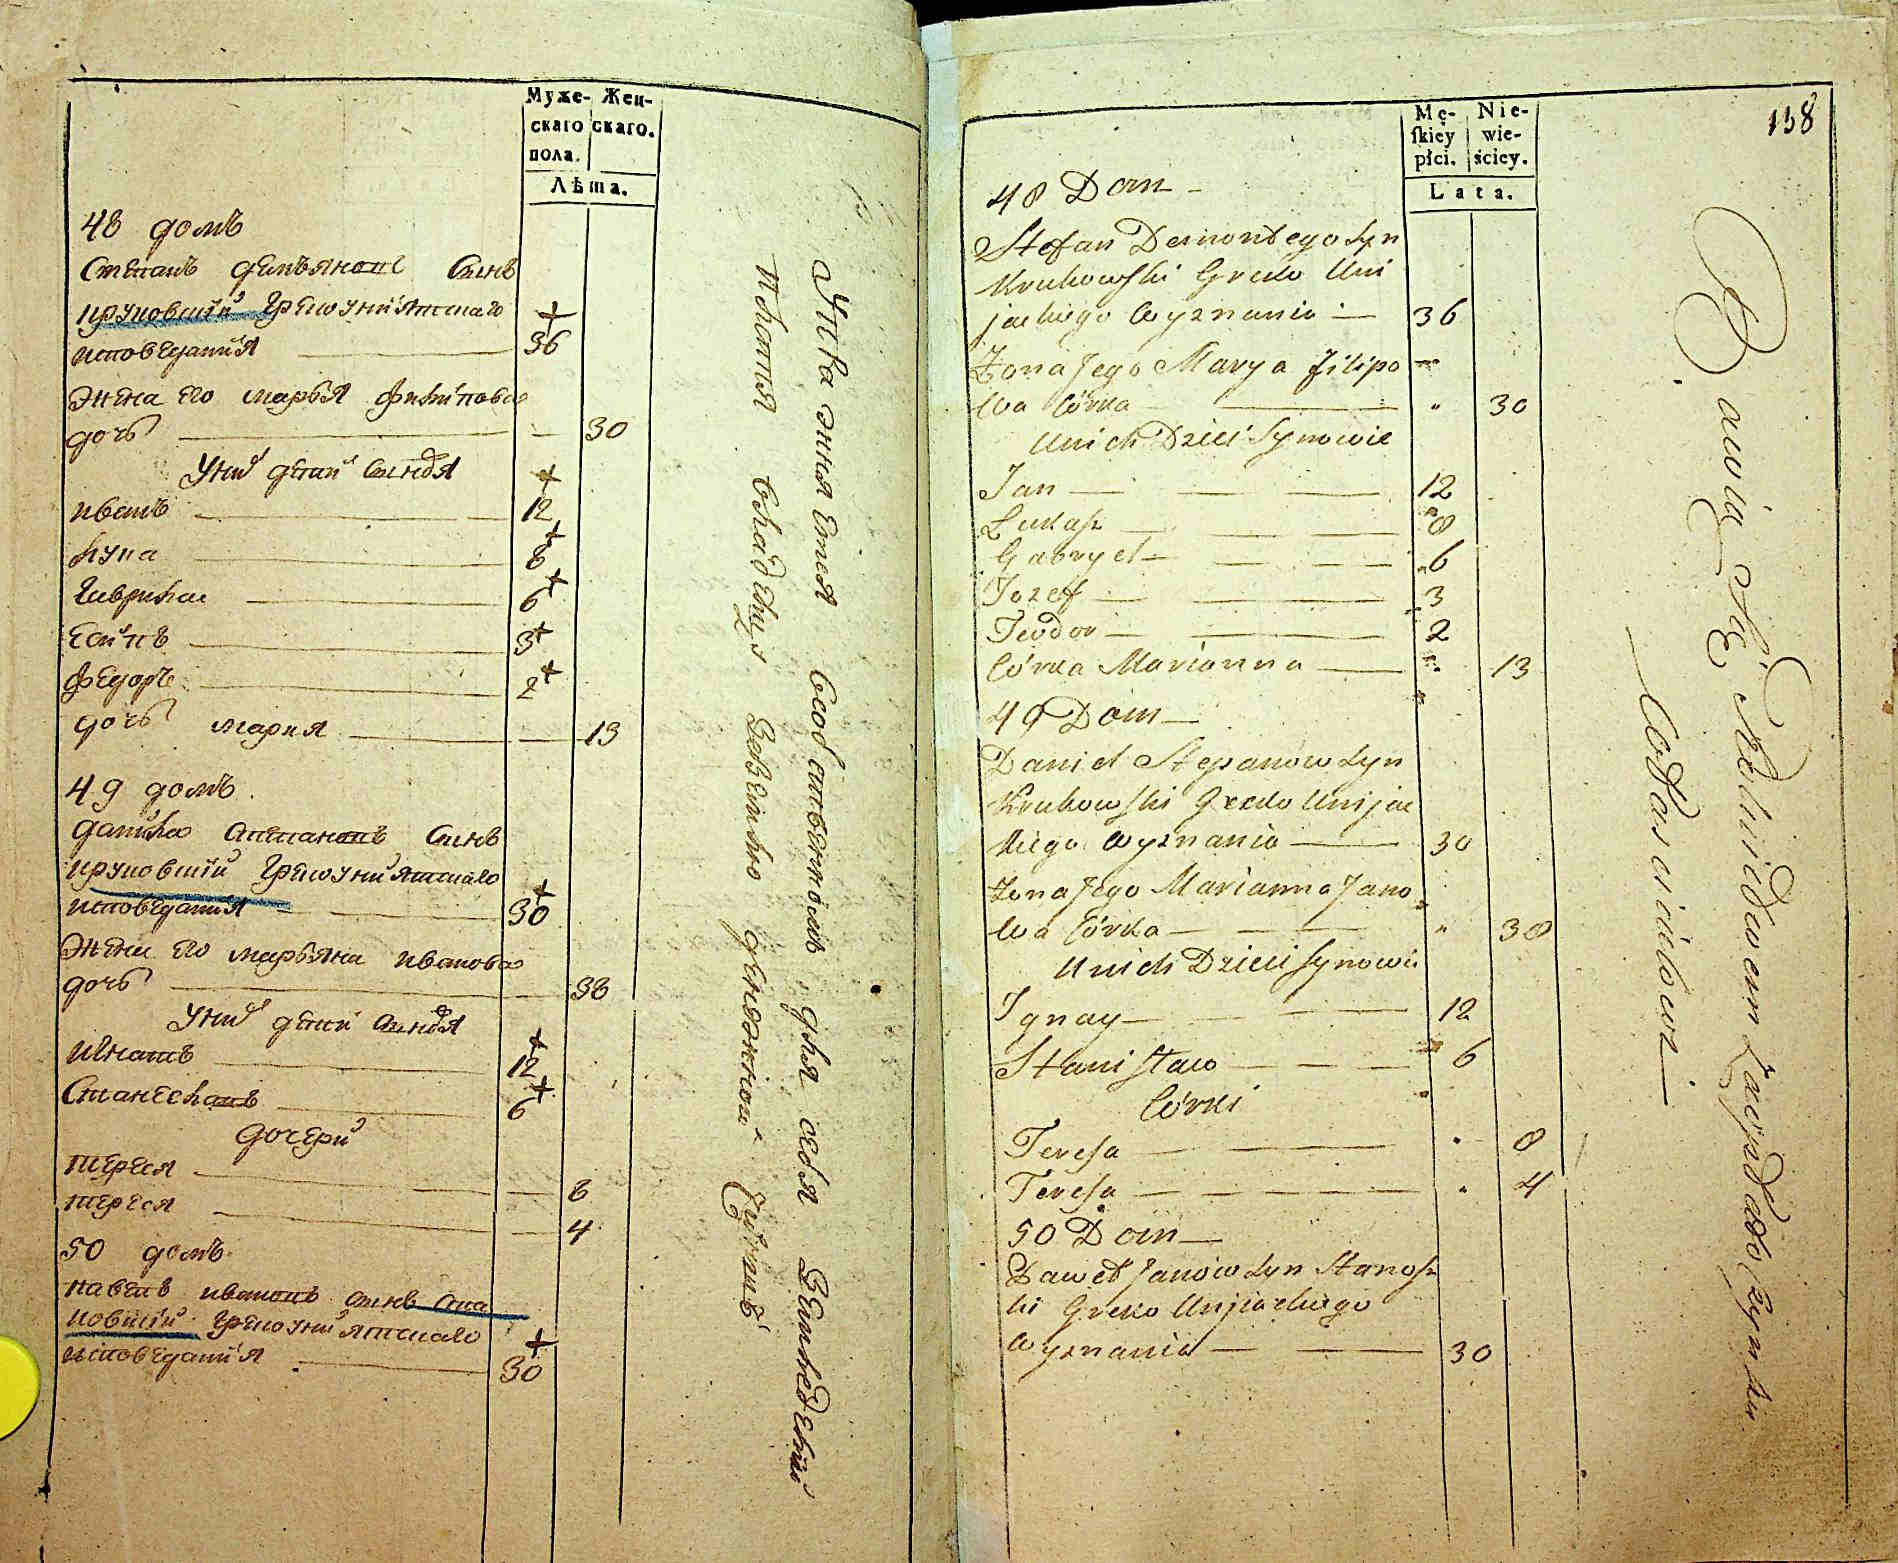 Муже-
скаго
пола.
Жен-
скаго.
Лѣта.
48 домъ
Степанъ Демьяновъ Сынъ
Круковский Грекоуниятскаго
исповедания 36
Жена его Марья Филипова
дочь 30
У них дети Сыновья
Иванъ 12
Лука 8
Гаврила 6
Есипъ 3
Федоръ 2
дочь Мария 13
49 домъ
Данила Степановъ Сынъ
Круковский Грекоуниятскаго
исповедания 30
Жена его Марьяна Иванова
дочь 38
У них дети Сыновья
Игнатъ 12
Станеславъ 6
Дочери
Тереся 8
Тереся 4
50 домъ
Павелъ Ивановъ Сынъ Ста
новский Грекоуниятскаго
исповедания 30
Упражняется собственной для себя земледелия
платя владельцу денежной
138
Mę-
ſkiey
płci.
Nie-
wie-
ściey.
Lata.
48 Dom
Stefan Demontego Syn
Krukowſki Greko Uni
jackiego Wyznania 36
Zona Jego Marya Filipo
wa Córka 30
U nich Dzieci Synowie
Jan 12
Łukasz 8
Gabryel 6
Jozef 3
Teodor 2
Córka Marianna 13
49 Dom
Daniel Stepanów Syn
Krukowſki Greko Unijac
kiego Wyznania 30
Zona Jego Marianna Jano
wa Córka 38
U nich Dzieci Synowie
Ignacy 12
Staniſław 6
Córki
Tereſa 8
Tereſa 4
50 Dom
Paweł Janów Syn Stanoſz
ki Greko Unjiackiego
Wyznania 30
Bawią Się Rolnictwem Zaco płacą Czynsz